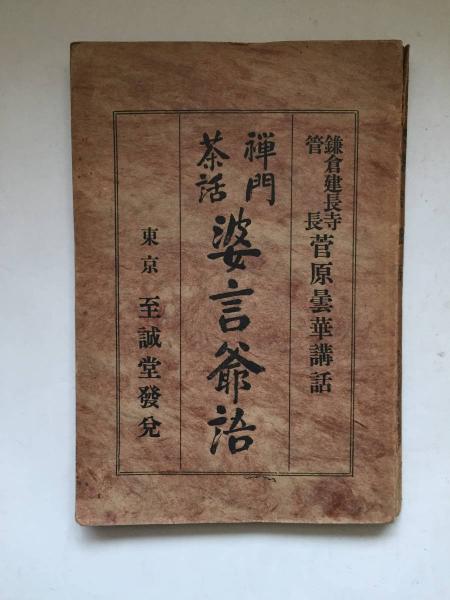 鎌倉建長寺
管長
菅原曇華講話
禅門
茶話
婆言爺語
東京 至誠堂發兌